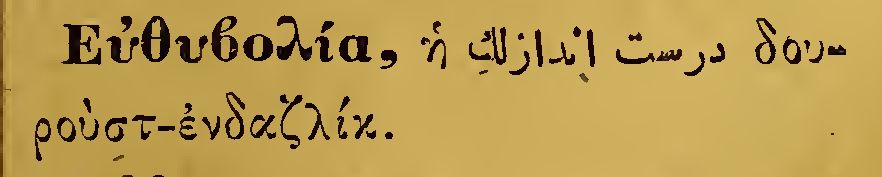 Εὐθυβολία, ἡ درست اندازلك δου-
ροὺστ-ἐνδαζλίκ.